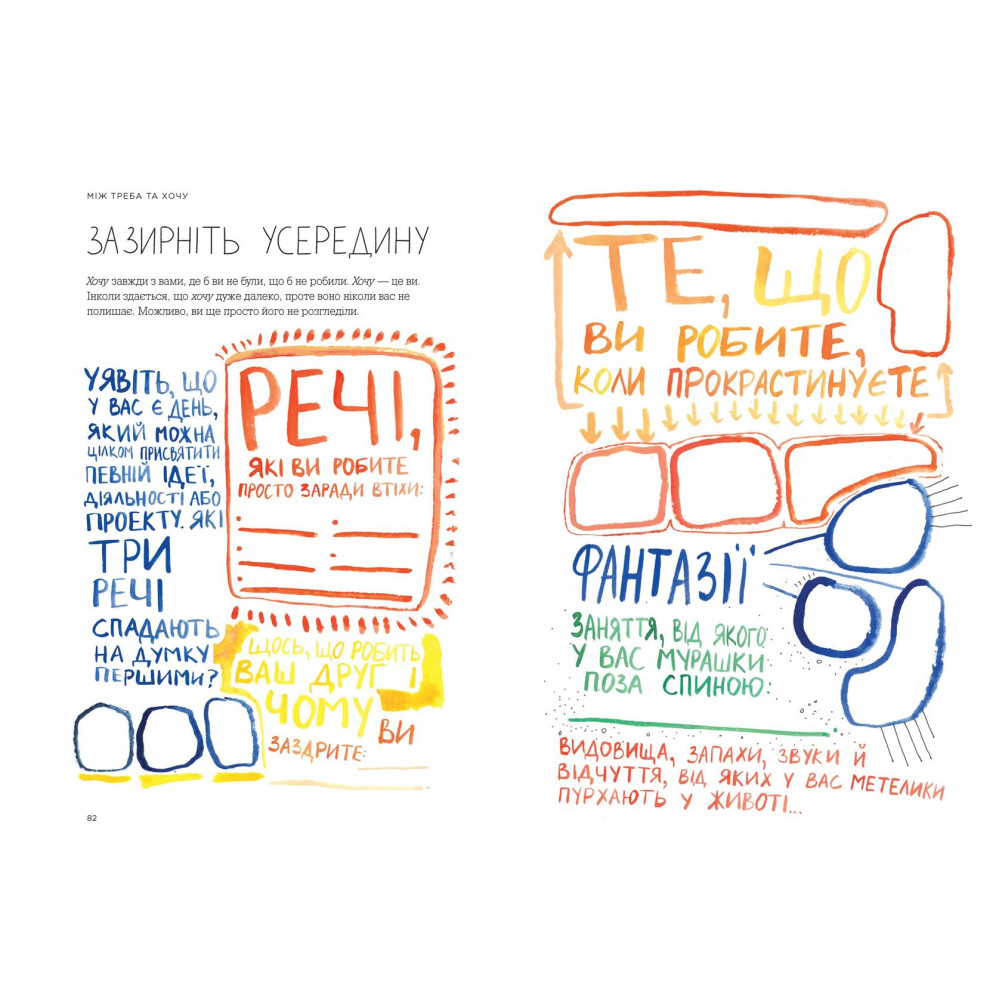 МІЖ ТРЕБА ТА ХОЧУ
ЗАЗИРНІТЬ УСЕРЕДИНУ
Хочу завжди з вами, де б ви не були, що б не робили. Хочу — це ви.
Інколи здається, що хочу дуже далеко, проте воно ніколи вас не
полишає. Можливо, ви ще просто його не розгледіли.
УЯВІТЬ, ЩО
У ВАС Є ДЕНЬ,
ЯКИЙ МОЖНА
ЦІЛКОМ ПРИСВЯТИТИ
ПЕВНІЙ ІДЕЇ,
ДІЯЛЬНОСТІ АБО
ПРОЕКТУ. ЯКІ
ТРИ
РЕЧІ
СПАДАЮТЬ
НА ДУМКУ
ПЕРШИМИ?
РЕЧІ,
ЯКІ ВИ РОБИТЕ
ПРОСТО ЗАРАДИ ВТІХИ:
ЩОСЬ, ЩО РОБИТЬ
ВАШ ДРУГ І
ЧОМУ ВИ
ЗАЗДРИТЕ:
82
ТЕ, ЩО
ВИ РОБИТЕ,
КОЛИ ПРОКРАСТИНУЄТЕ
ФАНТАЗІЇ
ЗАНЯТТЯ, ВІД ЯКОГО
У ВАС МУРАШКИ
ПОЗА СПИНОЮ:
ВИДОВИЩА, ЗАПАХИ, ЗВУКИ Й
ВІДЧУТТЯ, ВІД ЯКИХ У ВАС МЕТЕЛИКИ
ПУРХАЮТЬ У ЖИВОТІ...